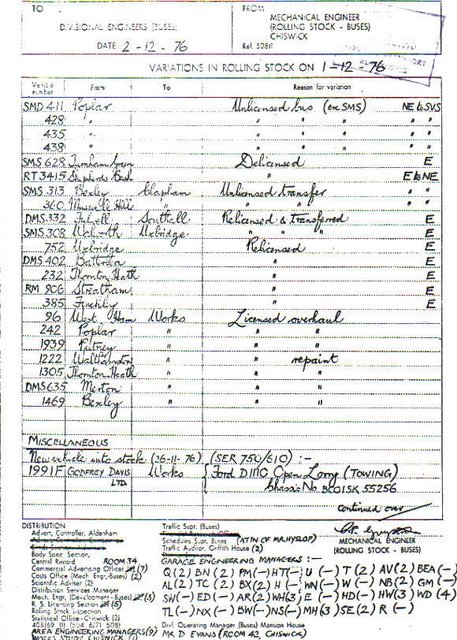 TO
FROM
DIVISIONAL ENGINEERS (BUSES)
MECHANICAL ENGINEER
(ROLLING STOCK - BUSES)
CHISWICK
DATE 2-12-76
Ref. 508/1
VARIATIONS IN ROLLING STOCK ON 1-12-76
Vehicle number From To Reason for variation
SMD 411 Poplar Unlicensed bus (ex SMS) NE to SVS
428 " " " " " "
435 " " " " " "
438 " " " " " "
SMS 628 Turnham Green Delicensed E
RT 3415 Shepherds Bush " E to NE
SMS 313 Bexley Clapham Unlicensed transfer " "
360 Muswell Hill " " " " "
DMS 332 Fulwell Southall Relicensed & transferred E
SMS 308 Walworth Uxbridge " " E
752 Uxbridge Relicensed E
DMS 402 Battersea " E
232 Thornton Heath " E
RM 906 Streatham " E
385 Finchley " E
96 West Ham Works Licensed overhaul
242 Poplar " " "
1939 Putney " " "
1222 Walthamstow " " repaint
1305 Thornton Heath " " "
DMS 635 Merton " " "
1469 Bexley " " "
MISCELLANEOUS
New vehicle into stock (26-11-76) (SER 750/610) :-
1991F GODFREY DAVIS LTD. Works { Ford D1110 Open Lorry (TOWING)
Chassis No BC01SK 55256
continued over
DISTRIBUTION
Advert. Controller, Aldenham
Body Spec. Section,
Central Record ROOM 34
Commercial Advertising Officer (7)
Costs Office (Mech. Engr.-Buses) (2)
Scientific Adviser (2)
Distribution Services Manager
Mech. Engr. (Development - Buses) (5)
R. S. Licensing Section (5)
Rolling Stock Inspection
Statistical Office - Chiswick (2)
AREA ENGINEERING MANAGERS (9)
Traffic Supt. (Buses)
Schedules Supt. (ATN OF MR HYSLOP)
Traffic Auditor, Griffith House (2)
MECHANICAL ENGINEER
(ROLLING STOCK - BUSES)
GARAGE ENGINEERING MANAGERS :-
Q (2) BN (2) PM (-) HT (-) U (-) T (2) AV (2) BEA (-)
AL (2) TC (2) BX (2) H (-) WN (-) W (-) NB (2) GM (-)
SW (-) ED (-) AR (2) WH (3) E (-) HD (-) HW (3) WD (4)
TL (-) NX (-) BW (-) NS (-) MH (3) SE (2) R (-)
Div. Operating Manager (Buses) Mansion House
MR D EVANS (ROOM 43, CHISWICK)